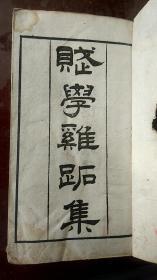 賤學雞跖集